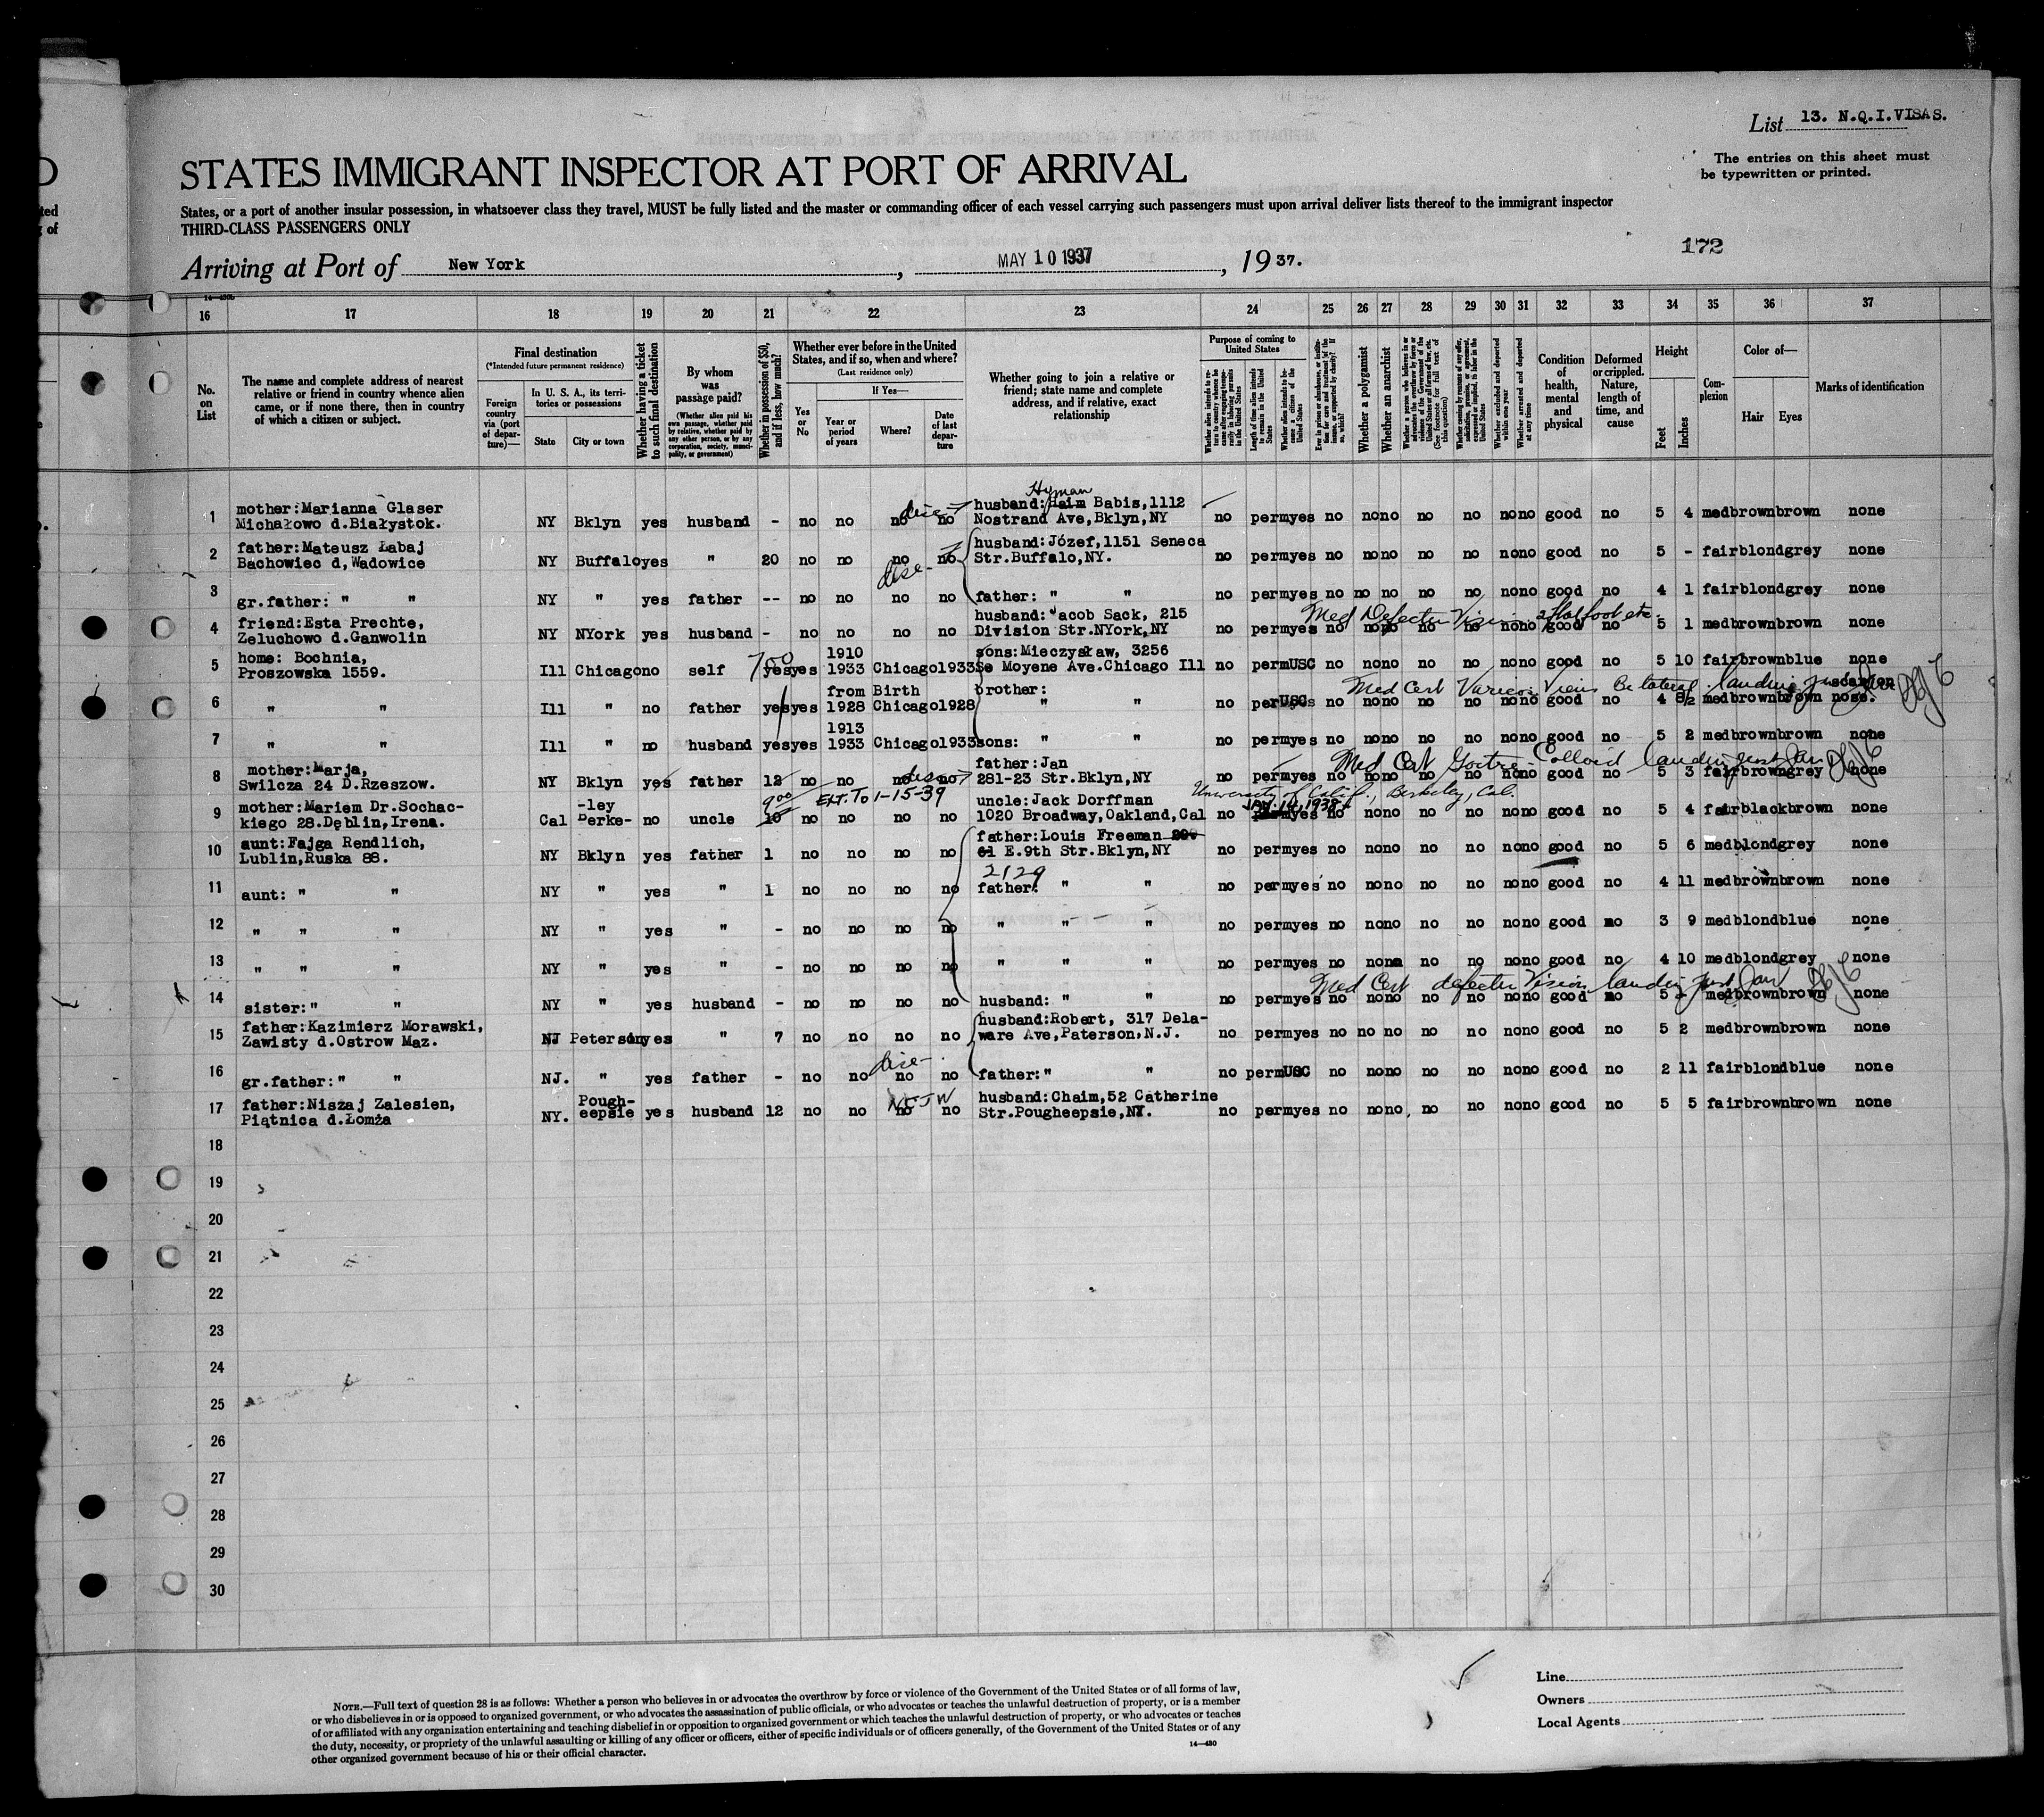 List 13. N.Q.I.VISAS.
The entries on this sheet must
be typewritten or printed.
STATES IMMIGRANT INSPECTOR AT PORT OF ARRIVAL
States, or a port of another insular possession, in whatsoever class they travel, MUST be fully listed and the master or commanding officer of each vessel carrying such passengers must upon arrival deliver lists thereof to the immigrant inspector
THIRD-CLASS PASSENGERS ONLY
172
Arriving at Port of New York, MAY 10 1937, 1937.
16 17 18 19 20 21 22 23 24 25 26 27 28 29 30 31 32 33 34 35 36 37
No. on List
The name and complete address of nearest relative or friend in country whence alien came, or if none there, then in country of which a citizen or subject.
Final destination
(*Intended future permanent residence)
Foreign country via (port of departure)—
In U. S. A., its territories or possessions
State City or town
Whether having a ticket to such final destination
By whom was passage paid?
(Whether alien paid his own passage, whether paid by relative, whether paid by any other person, or by any corporation, society, municipality, or government)
Whether in possession of $50, and if less, how much?
Whether ever before in the United States, and if so, when and where?
(Last residence only)
Yes or No
If Yes—
Year or period of years
Where?
Date of last departure
Whether going to join a relative or friend; state name and complete address, and if relative, exact relationship
Purpose of coming to United States
Length of time alien intends to remain in the United States
Whether alien intends to become a citizen of the United States
Whether a polygamist
Whether an anarchist
Whether excluded and deported within one year
Whether arrested and deported at any time
Condition of health, mental and physical
Deformed or crippled. Nature, length of time, and cause
Height
Feet Inches
Complexion
Color of—
Hair Eyes
Marks of identification
1 mother:Marianna Glaser Michałowo d.Białystok. NY Bklyn yes husband - no no no no husband: Hyman Haim Babis,1112 Nostrand Ave,Bklyn,NY no perm yes no no no no no no no good no 5 4 med brown brown none
2 father:Mateusz Łabaj Bachowiec d,Wadowice NY Buffalo yes " 20 no no no no husband:Józef,1151 Seneca Str.Buffalo,NY. no perm yes no no no no no no no good no 5 - fair blond grey none
3 gr.father: " " NY " yes father -- no no no no father: " " no perm yes no no no no no no no good no 4 1 fair blond grey none
4 friend:Esta Prechte, Zeluchowo d.Ganwolin NY NYork yes husband - no no no no husband: Jacob Sack, 215 Division Str.NYork,NY no perm yes no no no no no no no good no 5 1 med brown brown none
5 home: Bochnia, Proszowska 1559. Ill Chicago no self 700 yes yes 1910 1933 Chicago 1933 sons:Mieczysław, 3256 Se Moyene Ave.Chicago Ill no perm USC no no no no no no no good no 5 10 fair brown blue none
6 " " Ill " no father yes yes from Birth 1928 Chicago 1928 brother: " " no perm USC no no no no no no no good no 4 8/2 med brown brown nose.
7 " " Ill " no husband yes yes 1913 1933 Chicago 1933 sons: " " no perm yes no no no no no no no good no 5 2 med brown brown none
8 mother:Marja, Swilcza 24 D.Rzeszow. NY Bklyn yes father 12 no no no no father:Jan 281-23 Str.Bklyn,NY no perm yes no no no no no no no good no 5 3 fair brown grey none
EXT. To 1-15-39 University of Calif., Berkeley, Cal.
9 mother:Mariem Dr.Sochackiego 28.Dęblin,Irena. Cal Berke-ley no uncle 10 no no no no uncle:Jack Dorffman 1020 Broadway,Oakland,Cal no yes no no no no no no no good no 5 4 fair black brown none
10 aunt:Fajga Rendlich, Lublin,Ruska 88. NY Bklyn yes father 1 no no no no father:Louis Freeman E.9th Str.Bklyn,NY no perm yes no no no no no no no good no 5 6 med blond grey none
2129
11 aunt: " " NY " yes " 1 no no no no father: " " no perm yes no no no no no no no good no 4 11 med brown brown none
12 " " " NY " yes " - no no no no " " " no perm yes no no no no no no no good no 3 9 med blond blue none
13 " " " NY " yes " - no no no no " " " no perm yes no no no no no no no good no 4 10 med blond grey none
14 sister:" " NY " yes husband - no no no no husband: " " no perm yes no no no no no no no good no 5 med brown brown none
15 father:Kazimierz Morawski, Zawisty d.Ostrow Maz. NJ Peterson yes " 7 no no no no husband:Robert, 317 Delaware Ave,Paterson,N.J. no perm yes no no no no no no no good no 5 2 med brown brown none
16 gr.father:" " NJ. " yes father - no no no no father:" " no perm USC no no no no no no no good no 2 11 fair blond blue none
17 father:Niszaj Zalesien, Piątnica d.Łomża NY. Pough-eepsie yes husband 12 no no no no husband:Chaim,52 Catherine Str.Pougheepsie,NY. no perm yes no no no no no no no good no 5 5 fair brown brown none
18
19
20
21
22
23
24
25
26
27
28
29
30
NOTE.—Full text of question 28 is as follows: Whether a person who believes in or advocates the overthrow by force or violence of the Government of the United States or of all forms of law,
or who disbelieves in or is opposed to organized government, or who advocates the assassination of public officials, or who advocates or teaches the unlawful destruction of property, or is a member
of or affiliated with any organization entertaining and teaching disbelief in or opposition to organized government or which teaches the unlawful destruction of property, or who advocates or teaches
the duty, necessity, or propriety of the unlawful assaulting or killing of any officer or officers, either of specific individuals or of officers generally, of the Government of the United States or of any
other organized government because of his or their official character.
14—430
Line
Owners
Local Agents